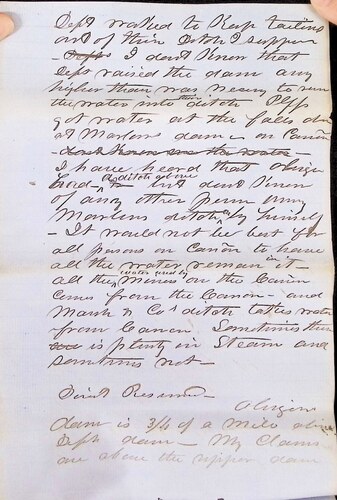 Deft worked to keep tailings
out of their ditch I suppose
- I dont know that
Deft raised the dam any
higher than was necary to run
the water into their ditch Plff
got water at the falls
at Marlens dam is on Cañon
I have heard that
had a ditch above but dont know
of any other firm any
Marlens ditch by himself
- It would not be best for
all persons on Cañon to have
all the water remain in it -
all the water used by mines on the Cañon
comes from the Canon - and
Marlen & Co's ditch takes water
from Canon Sometimes there
is plenty in Stream and
sometimes not -
Direct Resumed -
dam is 3/4 of a mile above
Deft dam - My Claims
are above the dam